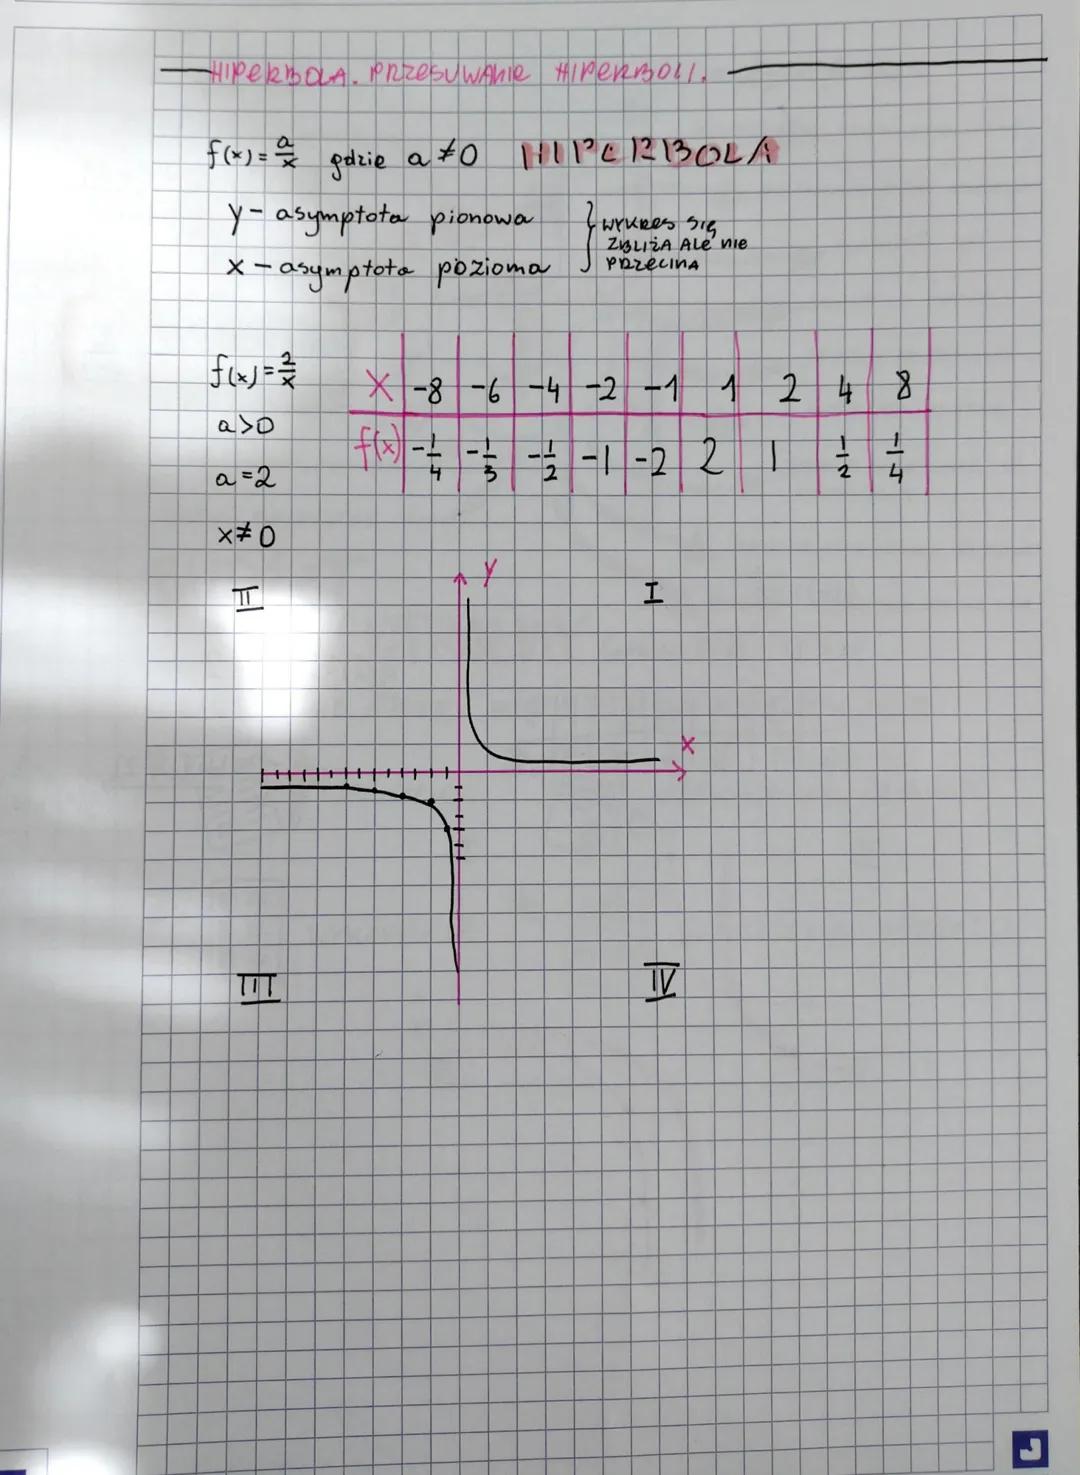 HIPERBOLA. PRZESUWANIE HIPERBOLI.
f(x) = a/x gdzie a ≠ 0 HIPERBOLA
y - asymptota pionowa } WYKRES SIĘ
ZBLIŻA ALE NIE
x - asymptota pozioma PRZECINA
f(x) = 2/x
x -8 -6 -4 -2 -1 1 2 4 8
a>0
f(x) -1/4 -1/3 -1/2 -1 -2 2 1 1/2 1/4
a = 2
x ≠ 0
y
II I
x
III IV